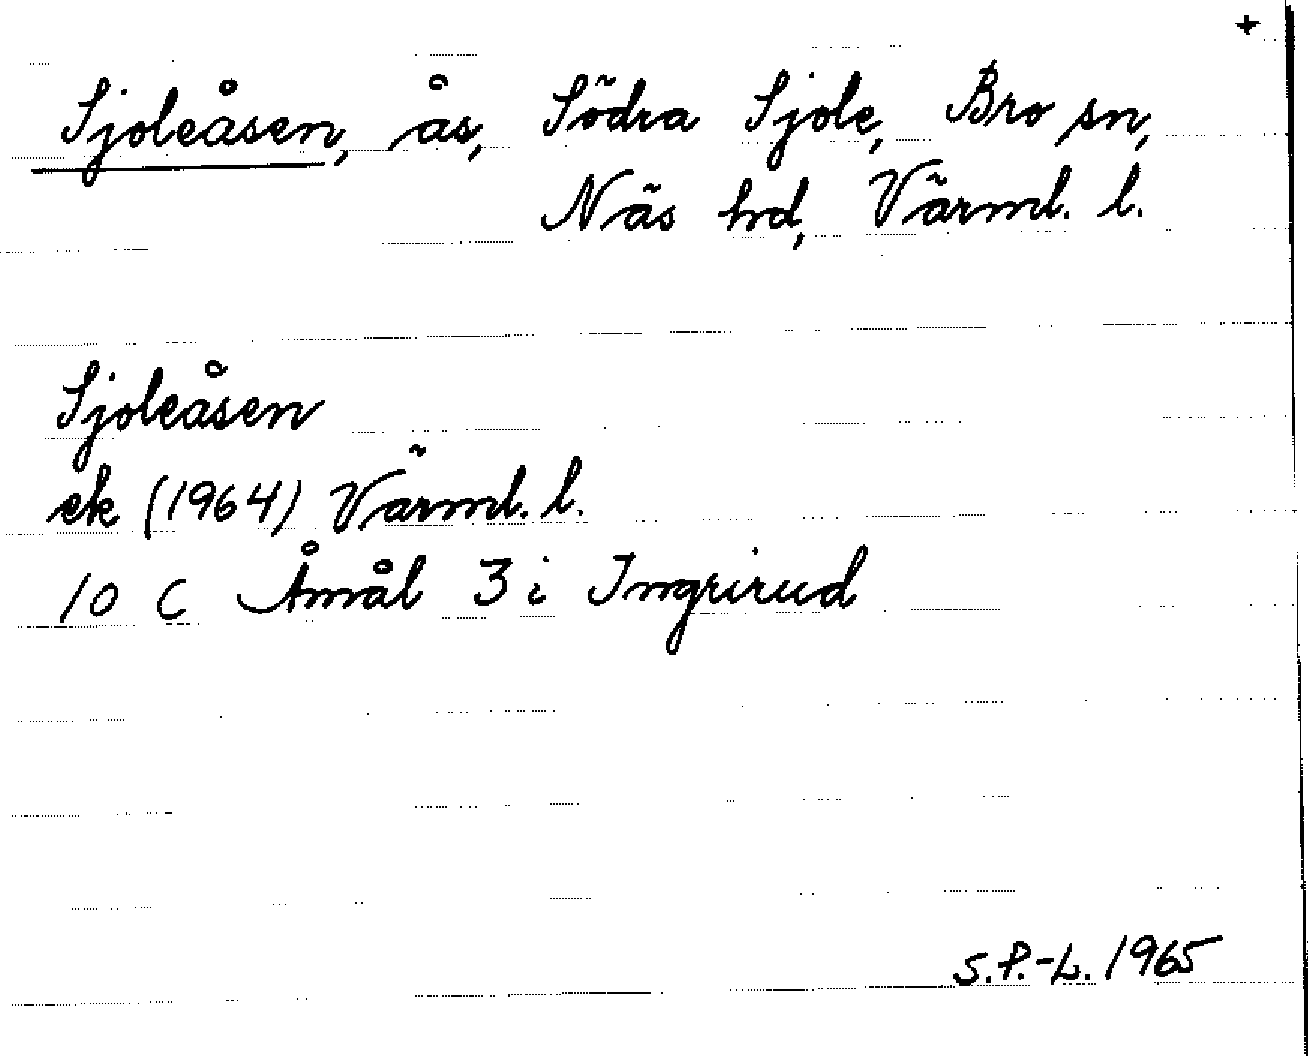 +
Sjoleåsen, ås, Södra Sjole, Bro sn,
Näs hd, Värml. l.
Sjoleåsen
ek (1964) Värml. l.
10 C Åmål 3 i Ingrirud
S.P.-L. 1965